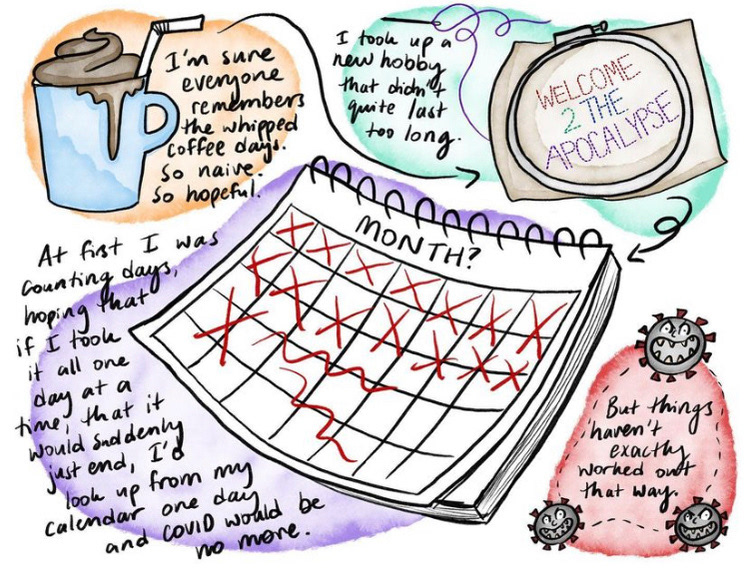 I'm sure
everyone
remembers
the whipped
coffee days.
So naive.
So hopeful.
I took up a
new hobby
that didn't
quite last
too long.
WELCOME
2 THE
APOCALYPSE
MONTH?
At first I was
counting days,
hoping that
if I took
it all one
day at a
time, that it
would suddenly
just end, I'd
look up from my
calendar one day
and COVID would be
no more.
But things
haven't
exactly
worked out
that way.